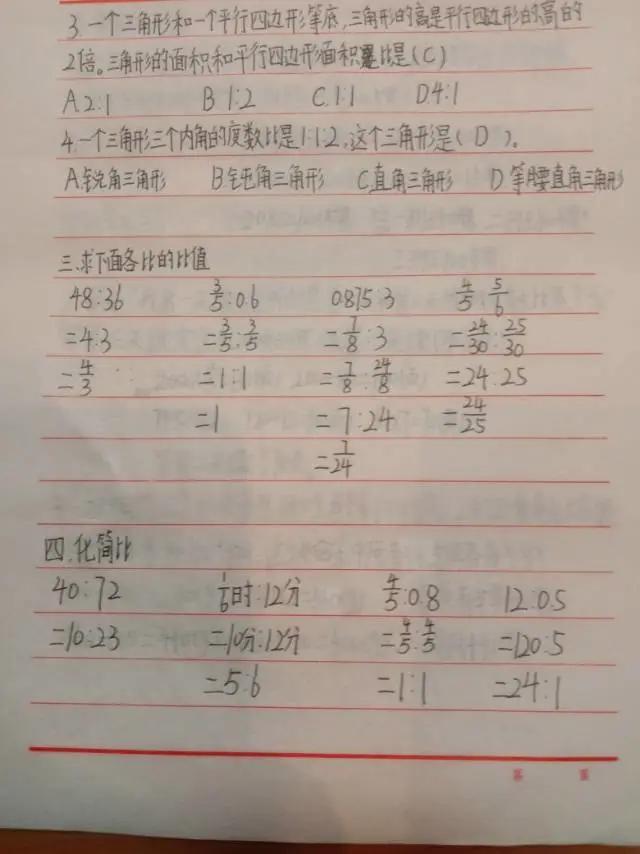 3.一个三角形和一个平行四边形等底,三角形的高是平行四边形的高的
2倍。三角形的面积和平行四边形面积比是(C)
A.2:1 B 1:2 C.1:1 D.4:1
4.一个三角形三个内角的度数比是1:1:2,这个三角形是(D)。
A.锐角三角形 B.钝角三角形 C.直角三角形 D.等腰直角三角形
三.求下面各比的比值
48:36 3/5:0.6 0.875:3 4/5:5/6
=4:3 =3/5:3/5 =7/8:3 =24/30:25/30
=4/3 =1:1 =7/8:24/8 =24:25
=1 =7:24 =24/25
=7/24
四.化简比
40:72 1/6时:12分 4/5:0.8 12:0.5
=10:23 =10分:12分 =4/5:4/5 =120:5
=5:6 =1:1 =24:1